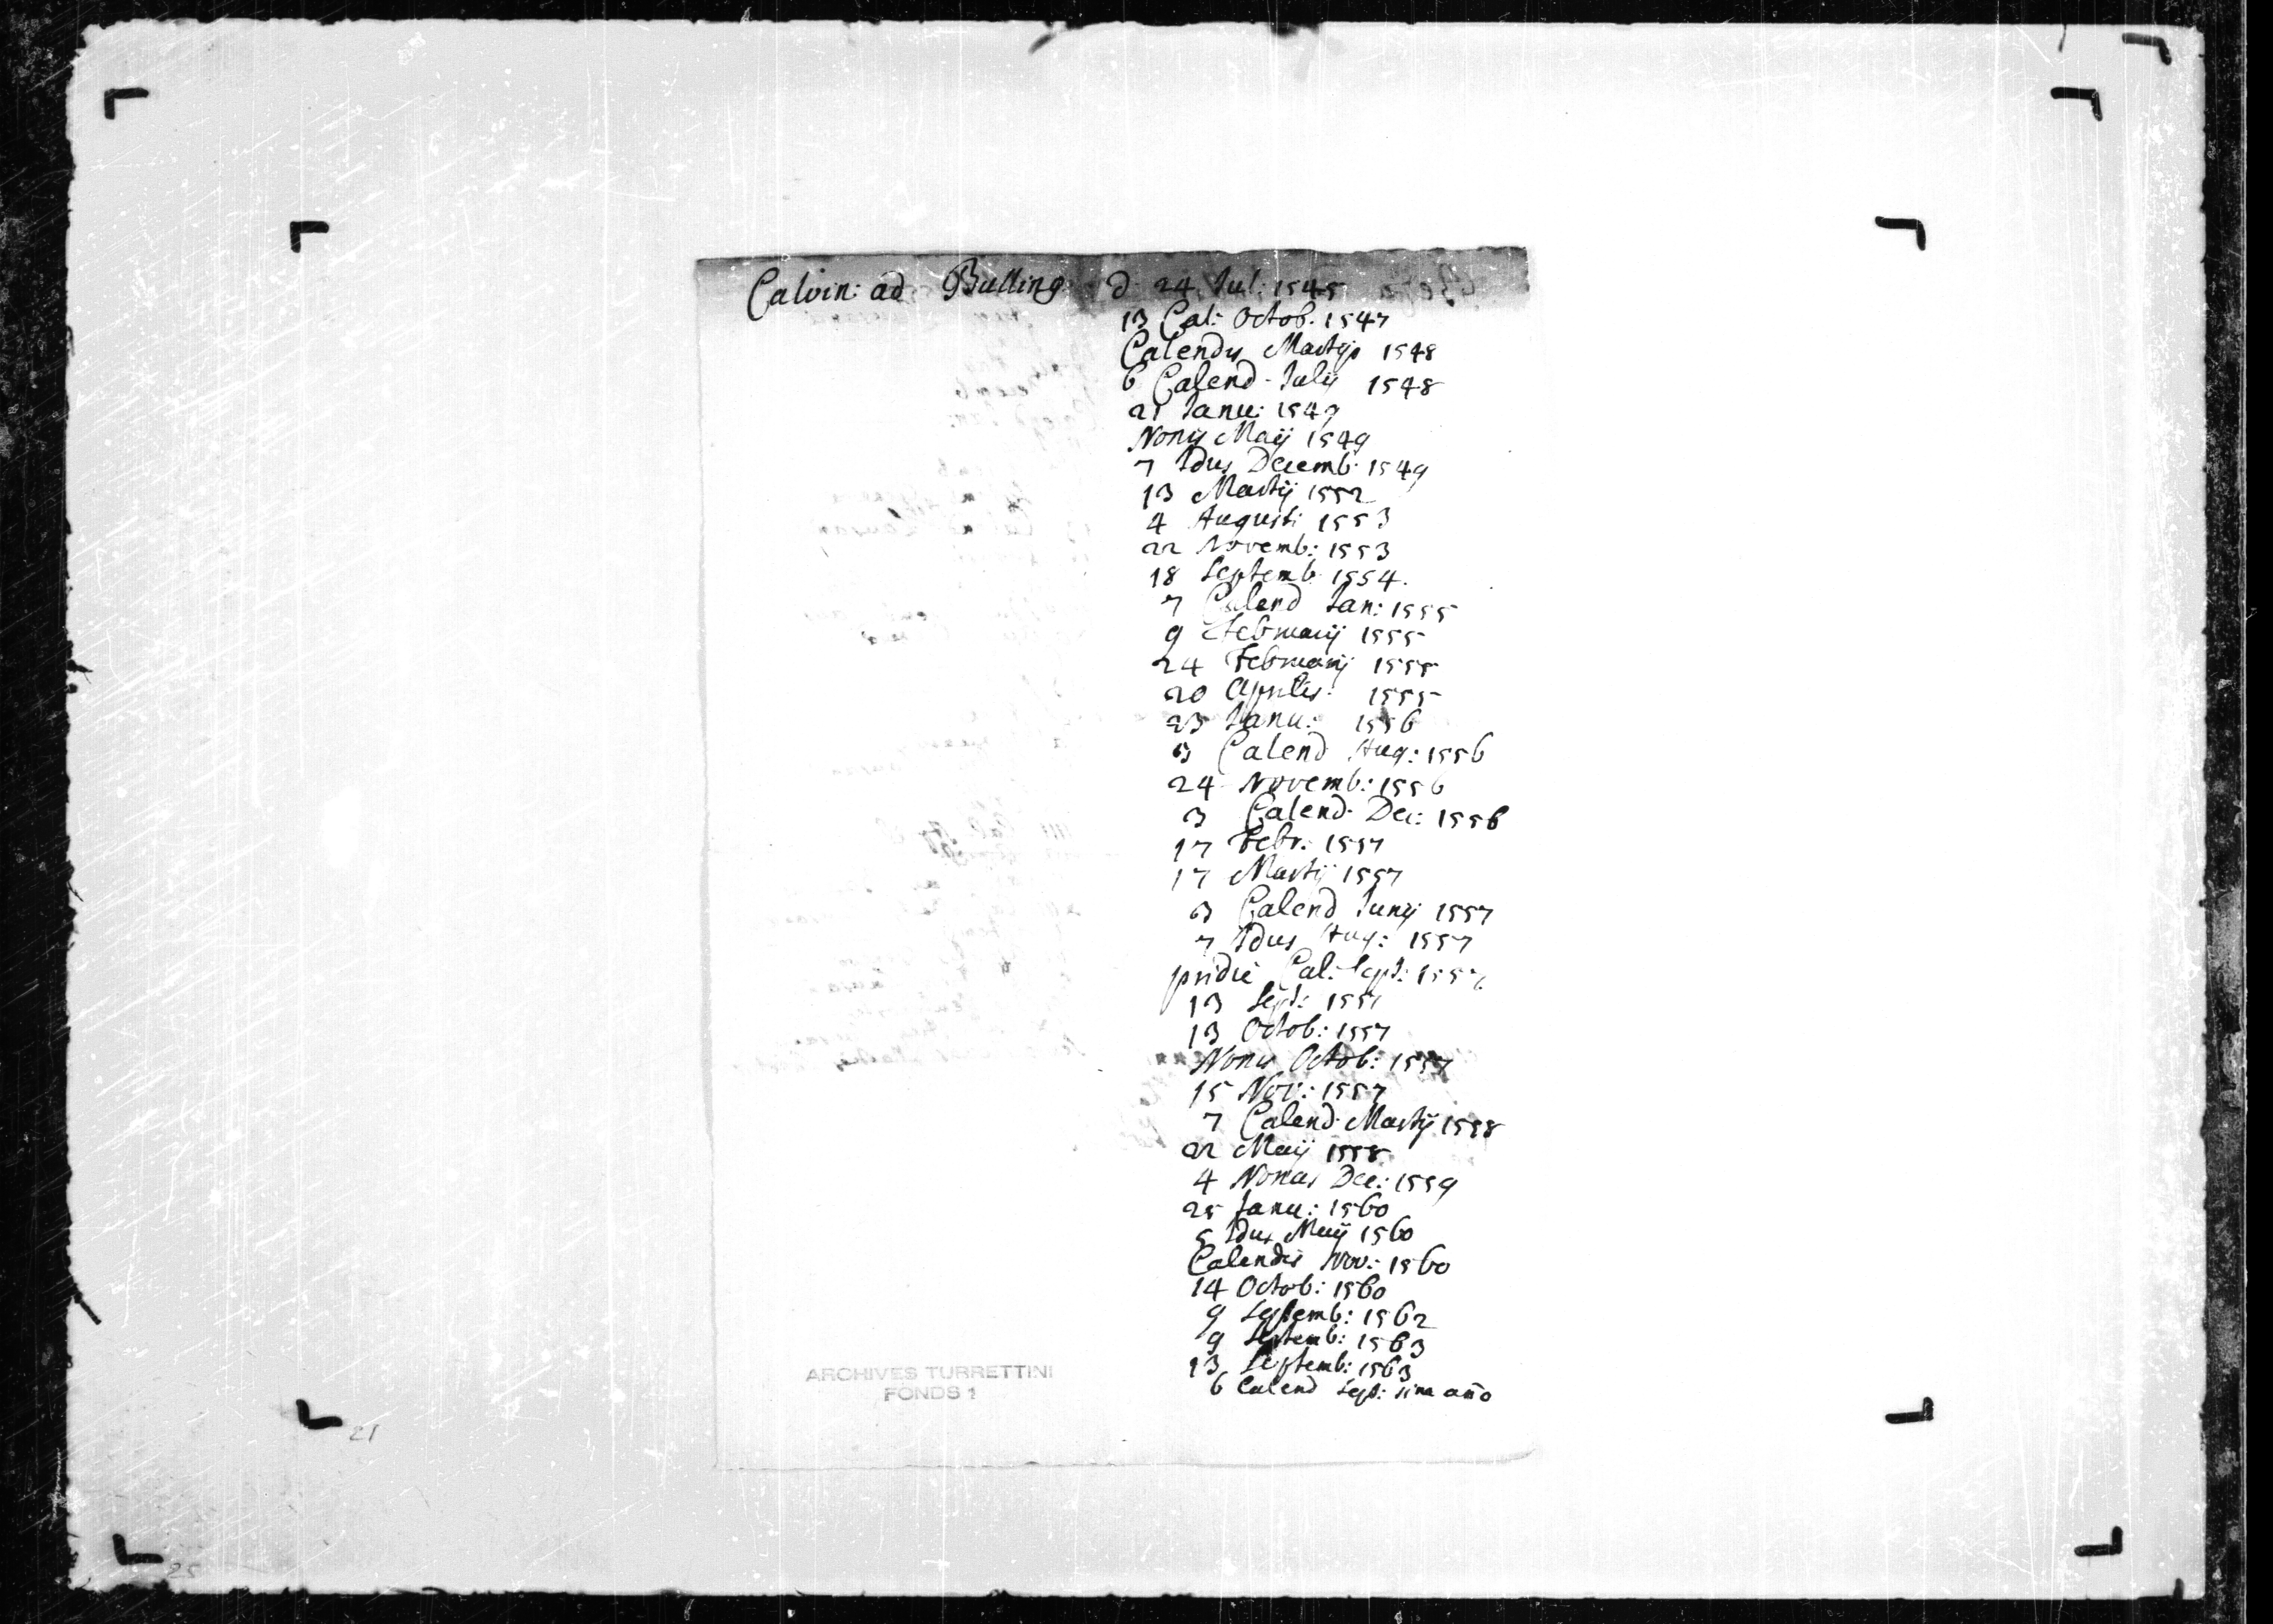 Calvin: ad Bulling d. 24 Jul: 1545
13 Cal: Octob. 1547
Calendis Martijs 1548
6 Calend. Julij 1548
21 Janu: 1549
Nonis Maij 1549
7 Idus Decemb. 1549
13 Martij 1552
4 Augusti 1553
22 Novemb: 1553
18 Septemb 1554.
7 Calend Jan: 1555
9 Februarij 1555
24 Februarij 1555
20 Aprilis. 1555
23 Janu: 1556
3 Calend Aug: 1556
24 Novemb: 1556
3 Calend. Dec: 1556
17 Febr: 1557
17 Martij 1557
3 Calend Junij 1557
7 Idus Aug: 1557
pridie Cal: Sept: 1557
13 Sept: 1557
13 Octob: 1557
Nonis Octob: 1557
15 Nov: 1557
7 Calend. Martij 1558
22 Maij 1558
4 Nonas Dec: 1559
25 Janu: 1560
5 Idus Maij 1560
Calendis Nov: 1560
14 Octob: 1560
9 Septemb: 1562
9 Septemb: 1563
13 Septemb: 1563
6 Calend Sept: sine año
ARCHIVES TURRETTINI
FONDS 1
21
25